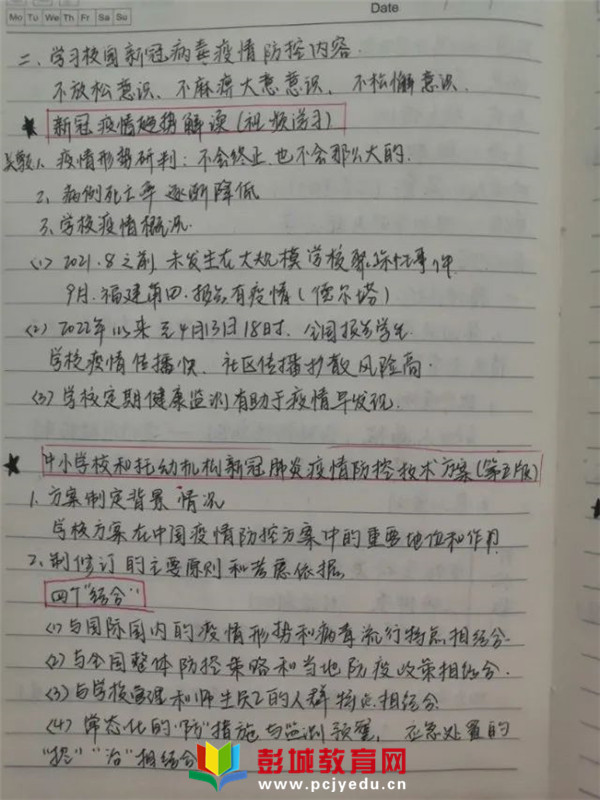 Date
Mo Tu We Th Fr Sa Su
二、学习校园新冠病毒疫情防控内容.
不放松意识、不麻痹大意意识、不松懈意识.
★ 新冠疫情趋势解读(视频学习)
1. 疫情形势研判: 不会终止也不会那么大的.
2. 病例死亡率逐渐降低
3. 学校疫情概况.
(1) 2021.8之前未发生在大规模学校聚
9月.福建莆田.报告有疫情(德尔塔)
(2) 2022年以来至4月13日18时.全国报告学生
学校疫情传播快.社区传播扩散风险高.
(3) 学校定期健康监测有助于疫情早发现.
★ 中小学校和托幼机构新冠肺炎疫情防控技术方案(第五版)
1. 方案制定背景情况
学校方案在中国疫情防控方案中的重要地位和作用
2. 制修订的主要原则和考虑依据.
四个"结合"
(1) 与国际国内的疫情形势和病毒流行特点相结合.
(2) 与全国整体防控策略和当地防疫政策相结合.
(3) 与学校管理和师生员工的人群特点相结合
(4) 常态化的"防"措施与监测预警,应急处置的
"控""治"相结合
彭城教育网
www.pcjyedu.cn